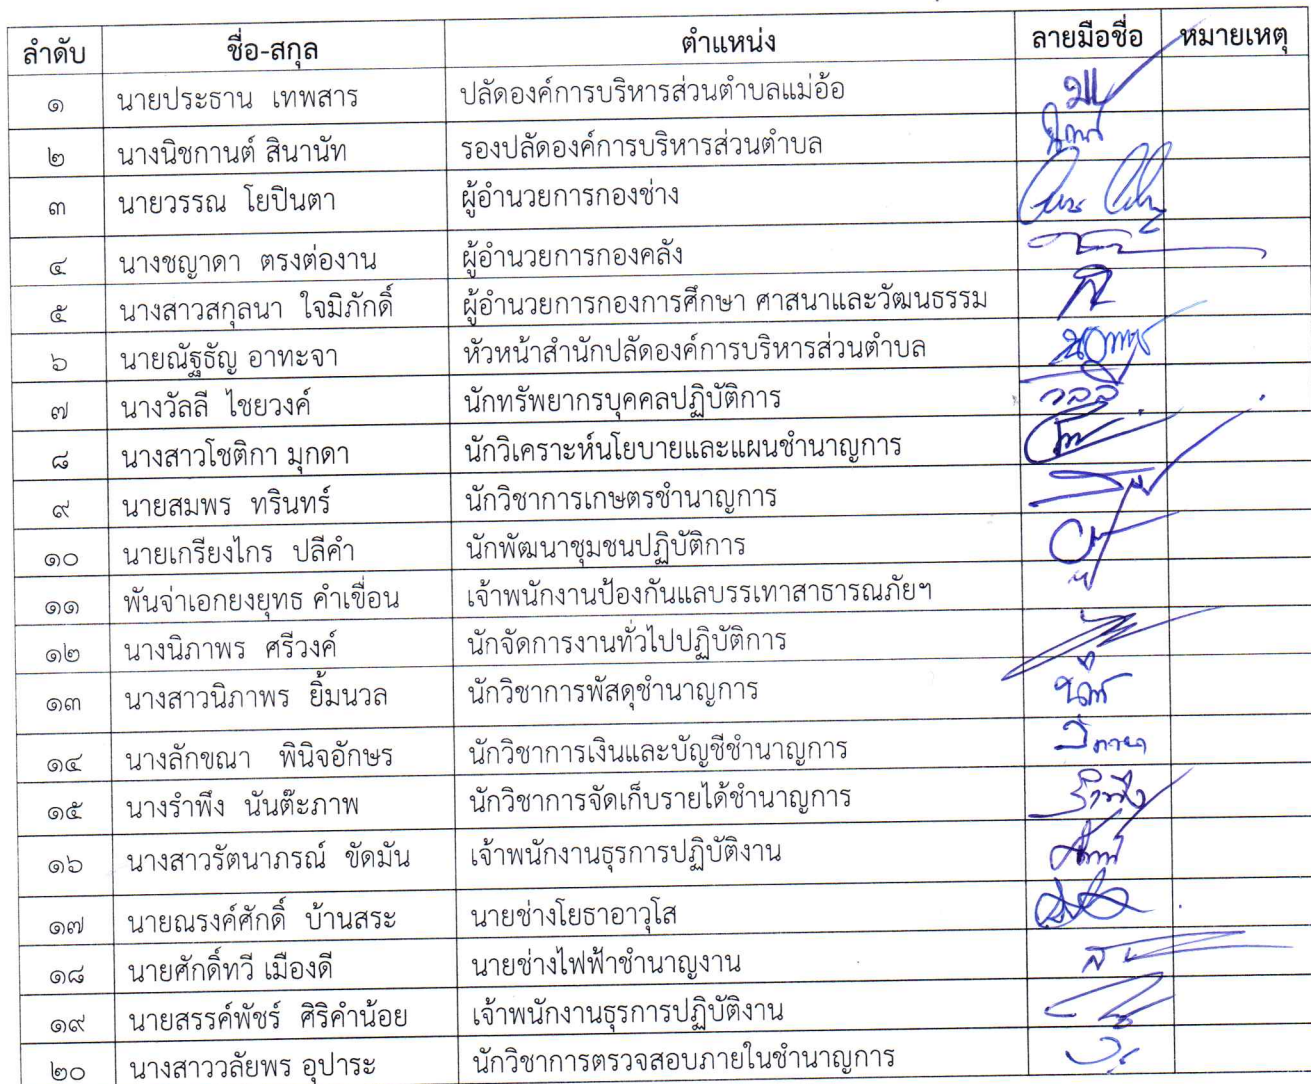 ลำดับ ชื่อ-สกุล ตำแหน่ง ลายมือชื่อ หมายเหตุ
๑ นายประธาน เทพสาร ปลัดองค์การบริหารส่วนตำบลแม่อ้อ
๒ นางนิชกานต์ สินานัท รองปลัดองค์การบริหารส่วนตำบล
๓ นายวรรณ โยปินตา ผู้อำนวยการกองช่าง
๔ นางชญาดา ตรงต่องาน ผู้อำนวยการกองคลัง
๕ นางสาวสกุลนา ใจมิภักดิ์ ผู้อำนวยการกองการศึกษา ศาสนาและวัฒนธรรม
๖ นายณัฐธัญ อาทะจา หัวหน้าสำนักปลัดองค์การบริหารส่วนตำบล
๗ นางวัลลี ไชยวงค์ นักทรัพยากรบุคคลปฏิบัติการ วลลี
๘ นางสาวโชติกา มุกดา นักวิเคราะห์นโยบายและแผนชำนาญการ
๙ นายสมพร ทรินทร์ นักวิชาการเกษตรชำนาญการ
๑๐ นายเกรียงไกร ปลีคำ นักพัฒนาชุมชนปฏิบัติการ
๑๑ พันจ่าเอกยงยุทธ คำเขื่อน เจ้าพนักงานป้องกันแลบรรเทาสาธารณภัยฯ
๑๒ นางนิภาพร ศรีวงค์ นักจัดการงานทั่วไปปฏิบัติการ
๑๓ นางสาวนิภาพร ยิ้มนวล นักวิชาการพัสดุชำนาญการ
๑๔ นางลักขณา พินิจอักษร นักวิชาการเงินและบัญชีชำนาญการ
๑๕ นางรำพึง นันต๊ะภาพ นักวิชาการจัดเก็บรายได้ชำนาญการ รำพึง
๑๖ นางสาวรัตนาภรณ์ ขัดมัน เจ้าพนักงานธุรการปฏิบัติงาน
๑๗ นายณรงค์ศักดิ์ บ้านสระ นายช่างโยธาอาวุโส
๑๘ นายศักดิ์ทวี เมืองดี นายช่างไฟฟ้าชำนาญงาน
๑๙ นายสรรค์พัชร์ ศิริคำน้อย เจ้าพนักงานธุรการปฏิบัติงาน
๒๐ นางสาววลัยพร อุปาระ นักวิชาการตรวจสอบภายในชำนาญการ